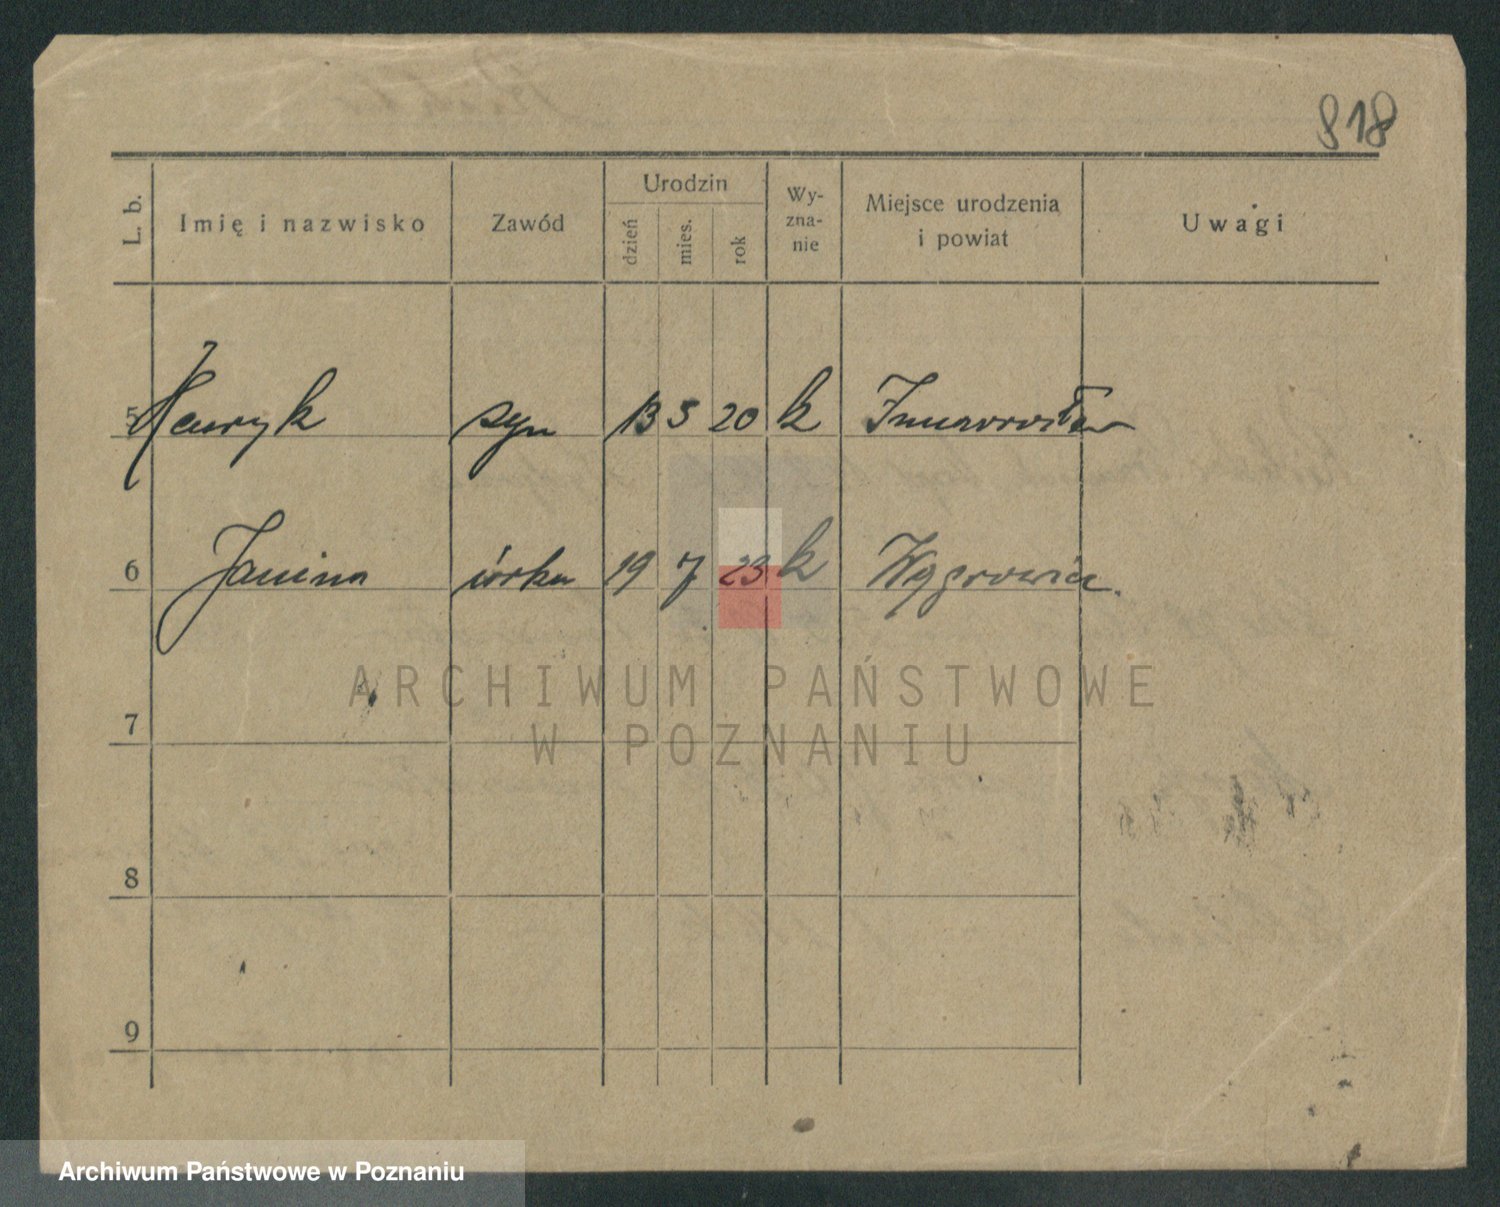 818
L. b. Imię i nazwisko Zawód Urodzin Wy-zna-nie Miejsce urodzenia i powiat Uwagi
dzień mies. rok
5 Henryk syn 13 5 20 k Inowrocław
6 Janina córka 19 7 23 k Wągrowiec
7
8
9
ARCHIWUM PAŃSTWOWE
W POZNANIU
Archiwum Państwowe w Poznaniu